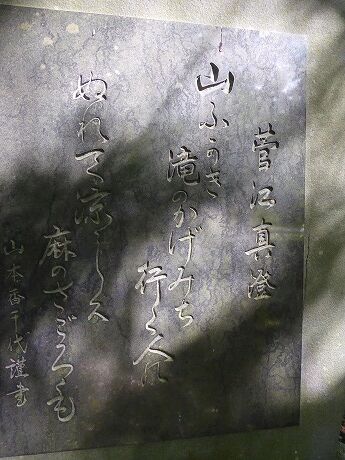 菅江真澄
山ふかき
滝のかげみち
行く人は
ぬれて涼しく
麻のさごろも
山本香千代謹書